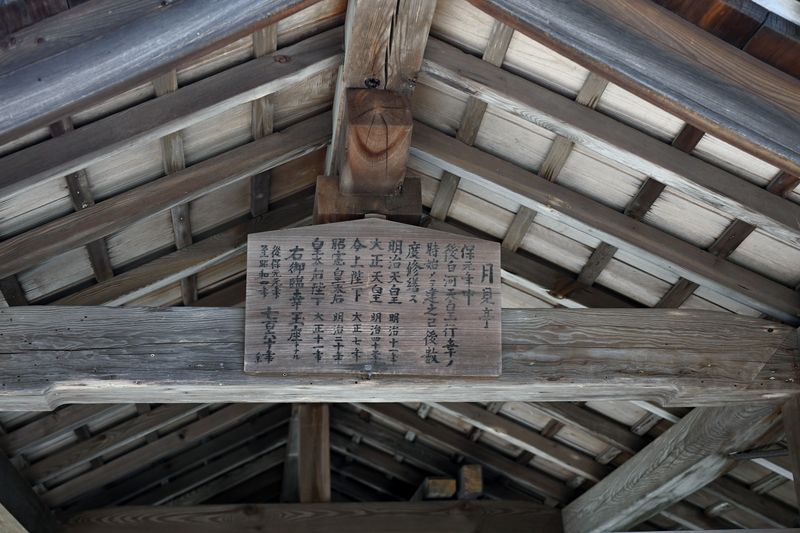 月見亭
保元年中
後白河天皇行幸ノ
時始テ建之已後数
度修繕ス
明治天皇 明治十一年
大正天皇 明治四十三年
今上陛下 大正七年
昭憲皇太后 明治三十年
皇太后陛下 大正十一年
右御臨幸玉座トナル
後保元元年
至昭和一年 七百六十年